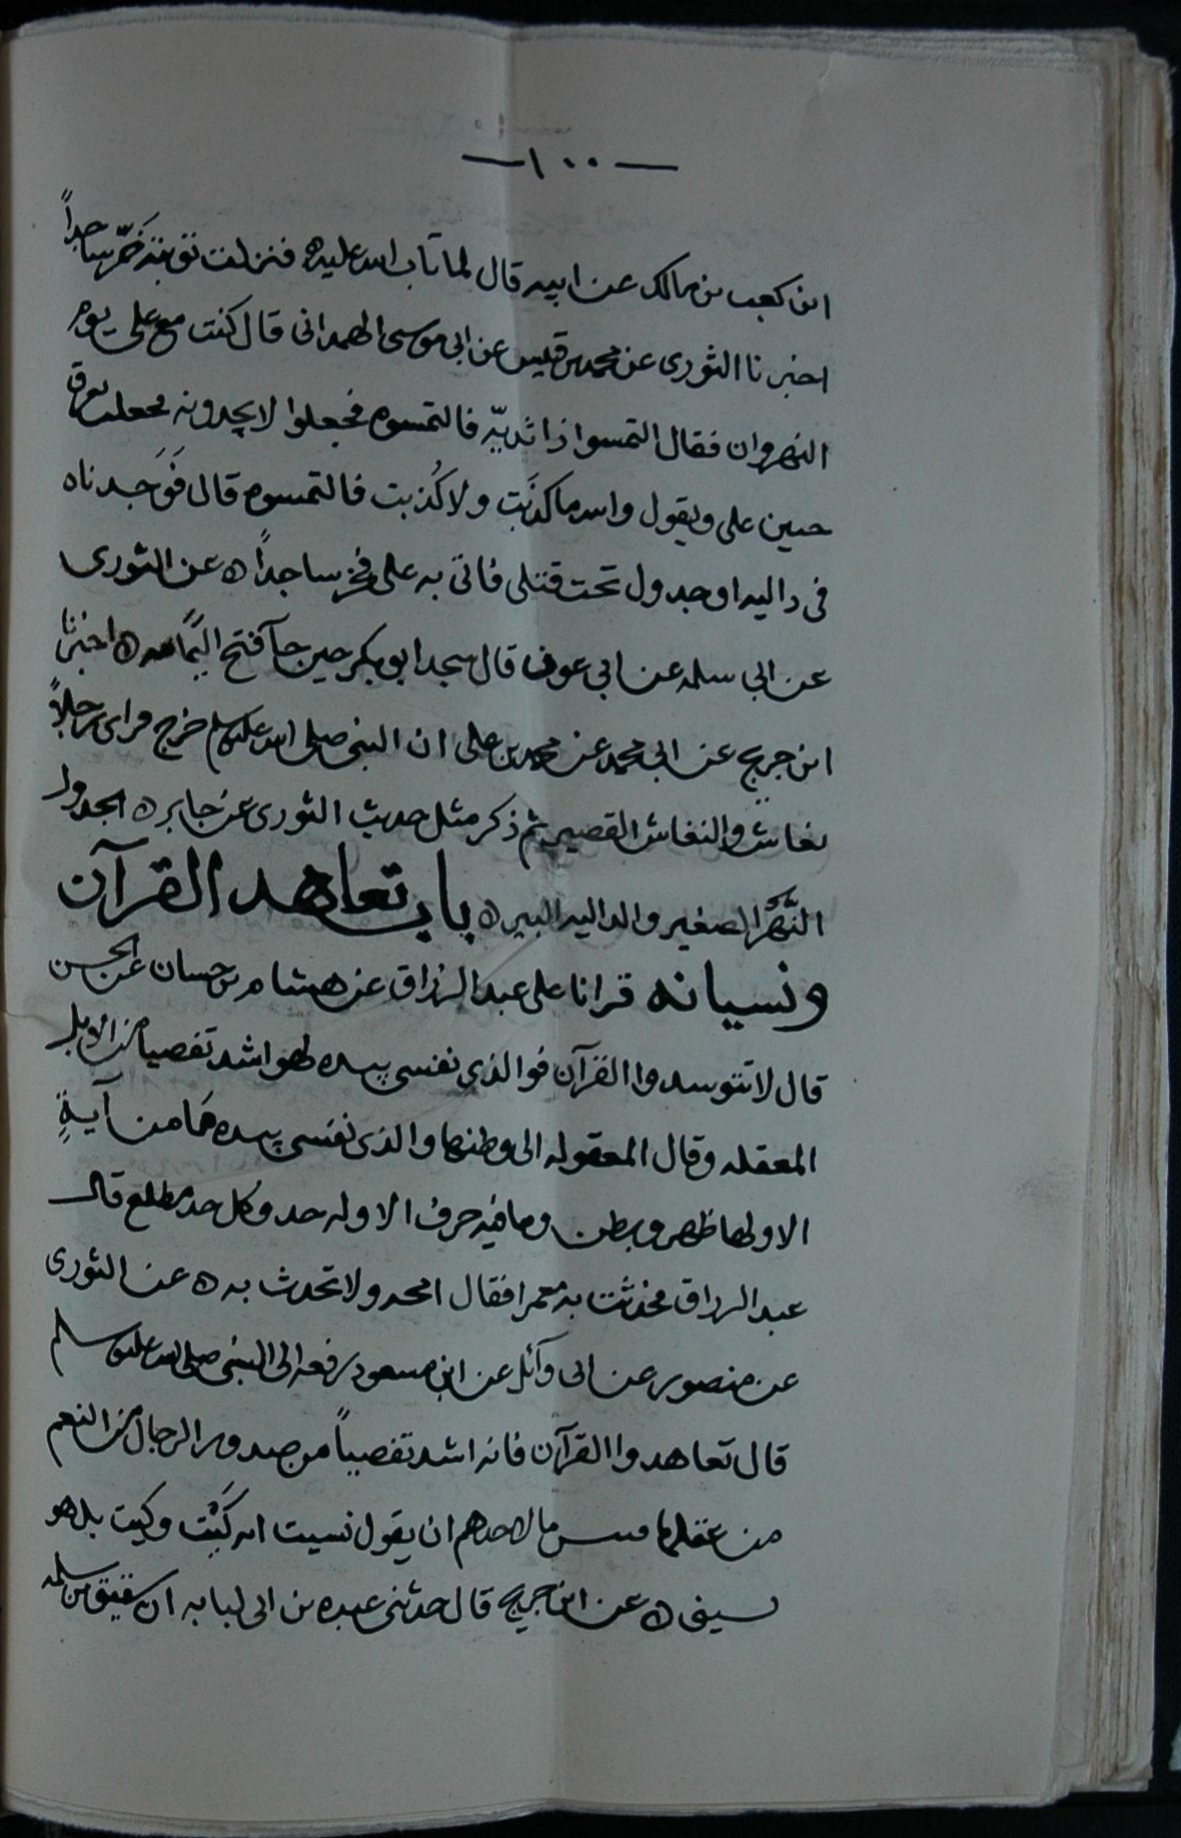 — ١٠٠ —
ابن كعب بن مالك عن ابيه قال لما تاب الله عليه فنزلت توبته خَرّ ساجداً
اخبرنا الثورى عن محمد بن قيس عن ابى موسى الهمدانى قال كنت مع على يوم
النهروان فقال التمسوا ذا ثديّه فالتمسوه فجعلوا لا يجدونه فجعلت تعرق
جبين على ويقول والله ما كذَبت ولا كُذبت فالتمسوه قال فَوَجدناه
فى داليه او جدول تحت قتلى فاتى به على فخر ساجداً ه عن الثورى
عن ابى سلمه عن ابى عون قال سجد ابو بكر حين جآ فتح اليمامه ه اخبرنا
ابن جريج عن ابى محمد عن محمد بن على ان النبى صلى الله عليه وسلم خرج فراى رجلاً
نغاش والنغاش القصير ثم ذكر مثل حديث الثورى عن جابر ه الجدول
النَّهَرُ الصغير والداليه البير ه باب تعاهد القرآن
ونسيانه قرانا على عبد الرزاق عن هشام بن حسان عن الحسن
قال لا تتوسدوا القرآن فوالذى نفسى بيده لهو اشد تفصيا من الابل
المعقله وقال المعقوله الى وطنها والذى نفسى بيده مَا من آيةٍ
الا ولها ظهر وبطن وما فيه حرف الا وله حد وكل حد مطلع قال
عبد الرزاق فحدثت به معمرا فقال امحه ولا تحدث به ه عن الثورى
عن منصور عن ابى وآئل عن ابن مسعود رفعه الى النبى صلى الله عليه وسلم
قال تعاهدوا القرآن فانه اشد تفصياً من صدور الرجال من النعم
من عقلها بئس ما لاحدهم ان يقول نسيت ايه كَيْت وكيت بل هو
نسى ه عن ابن جريج قال حدثنى عبده بن ابى لبابه ان شقيق بن سلمه